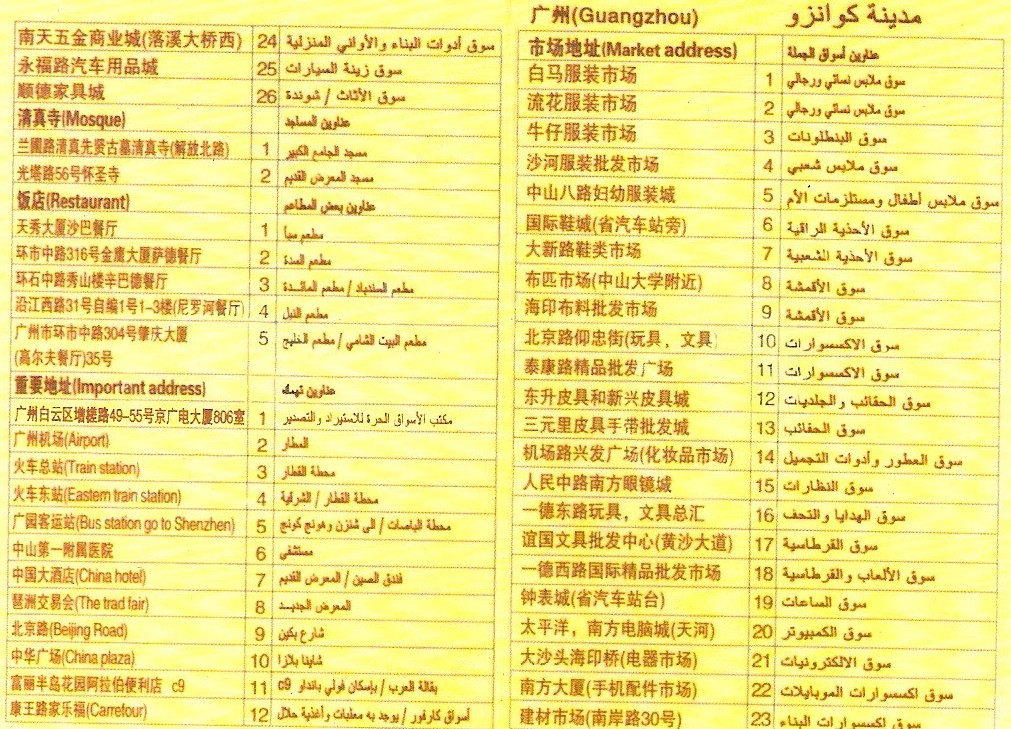 广州(Guangzhou) مدينة كوانزو
市场地址(Market address) عناوين أسواق الجملة
白马服装市场 1 سوق ملابس نسائي ورجالي
流花服装市场 2 سوق ملابس نسائي ورجالي
牛仔服装市场 3 سوق البنطلونات
沙河服装批发市场 4 سوق ملابس شعبي
中山八路妇幼服装城 5 سوق ملابس أطفال ومستلزمات الأم
国际鞋城(省汽车站旁) 6 سوق الأحذية الراقية
大新路鞋类市场 7 سوق الأحذية الشعبية
布匹市场(中山大学附近) 8 سوق الأقمشة
海印布料批发市场 9 سوق الأقمشة
北京路仰忠街(玩具，文具) 10 سوق الاكسسوارات
泰康路精品批发广场 11 سوق الاكسسوارات
东升皮具和新兴皮具城 12 سوق الحقائب والجلديات
三元里皮具手带批发城 13 سوق الحقائب
机场路兴发广场(化妆品市场) 14 سوق العطور وأدوات التجميل
人民中路南方眼镜城 15 سوق النظارات
一德东路玩具，文具总汇 16 سوق الهدايا والتحف
谊国文具批发中心(黄沙大道) 17 سوق القرطاسية
一德西路国际精品批发市场 18 سوق الألعاب والقرطاسية
钟表城(省汽车站台) 19 سوق الساعات
太平洋，南方电脑城(天河) 20 سوق الكمبيوتر
大沙头海印桥(电器市场) 21 سوق الالكترونيات
南方大厦(手机配件市场) 22 سوق اكسسوارات الموبايلات
建材市场(南岸路30号) 23 سوق اكسسوارات البناء
南天五金商业城(落溪大桥西) 24 سوق أدوات البناء والأواني المنزلية
永福路汽车用品城 25 سوق زينة السيارات
顺德家具城 26 سوق الأثاث / شوندة
清真寺(Mosque) عناوين المساجد
兰圃路清真先贤古墓清真寺(解放北路) 1 مسجد الجامع الكبير
光塔路56号怀圣寺 2 مسجد المعرض القديم
饭店(Restaurant) عناوين بعض المطاعم
天秀大厦沙巴餐厅 1 مطعم سبأ
环市中路316号金鹰大厦萨德餐厅 2 مطعم السدة
环石中路秀山楼辛巴德餐厅 3 مطعم السندباد / مطعم المائدة
沿江西路31号自编1号1-3楼(尼罗河餐厅) 4 مطعم النيل
广州市环市中路304号肇庆大厦 5 مطعم البيت الشامي / مطعم الخليج
(高尔夫餐厅)35号
重要地址(Important address) عناوين تهمك
广州白云区增槎路49-55号京广电大厦806室 1 مكتب الأسواق الحرة للاستيراد والتصدير
广州机场(Airport) 2 المطار
火车总站(Train station) 3 محطة القطار
火车东站(Eastern train station) 4 محطة القطار / الشرقية
广园客运站(Bus station go to Shenzhen) 5 محطة الباصات / الى شنزن وهونج كونج
中山第一附属医院 6 مستشفى
中国大酒店(China hotel) 7 فندق الصين / المعرض القديم
琶洲交易会(The trad fair) 8 المعرض الجديد
北京路(Beijing Road) 9 شارع بكين
中华广场(China plaza) 10 شاينا بلازا
富丽半岛花园阿拉伯便利店 c9 11 بقالة العرب / بإسكان فولي بانداو c9
康王路家乐福(Carrefour) 12 أسواق كارفور / يوجد به معلبات وأغذية حلال